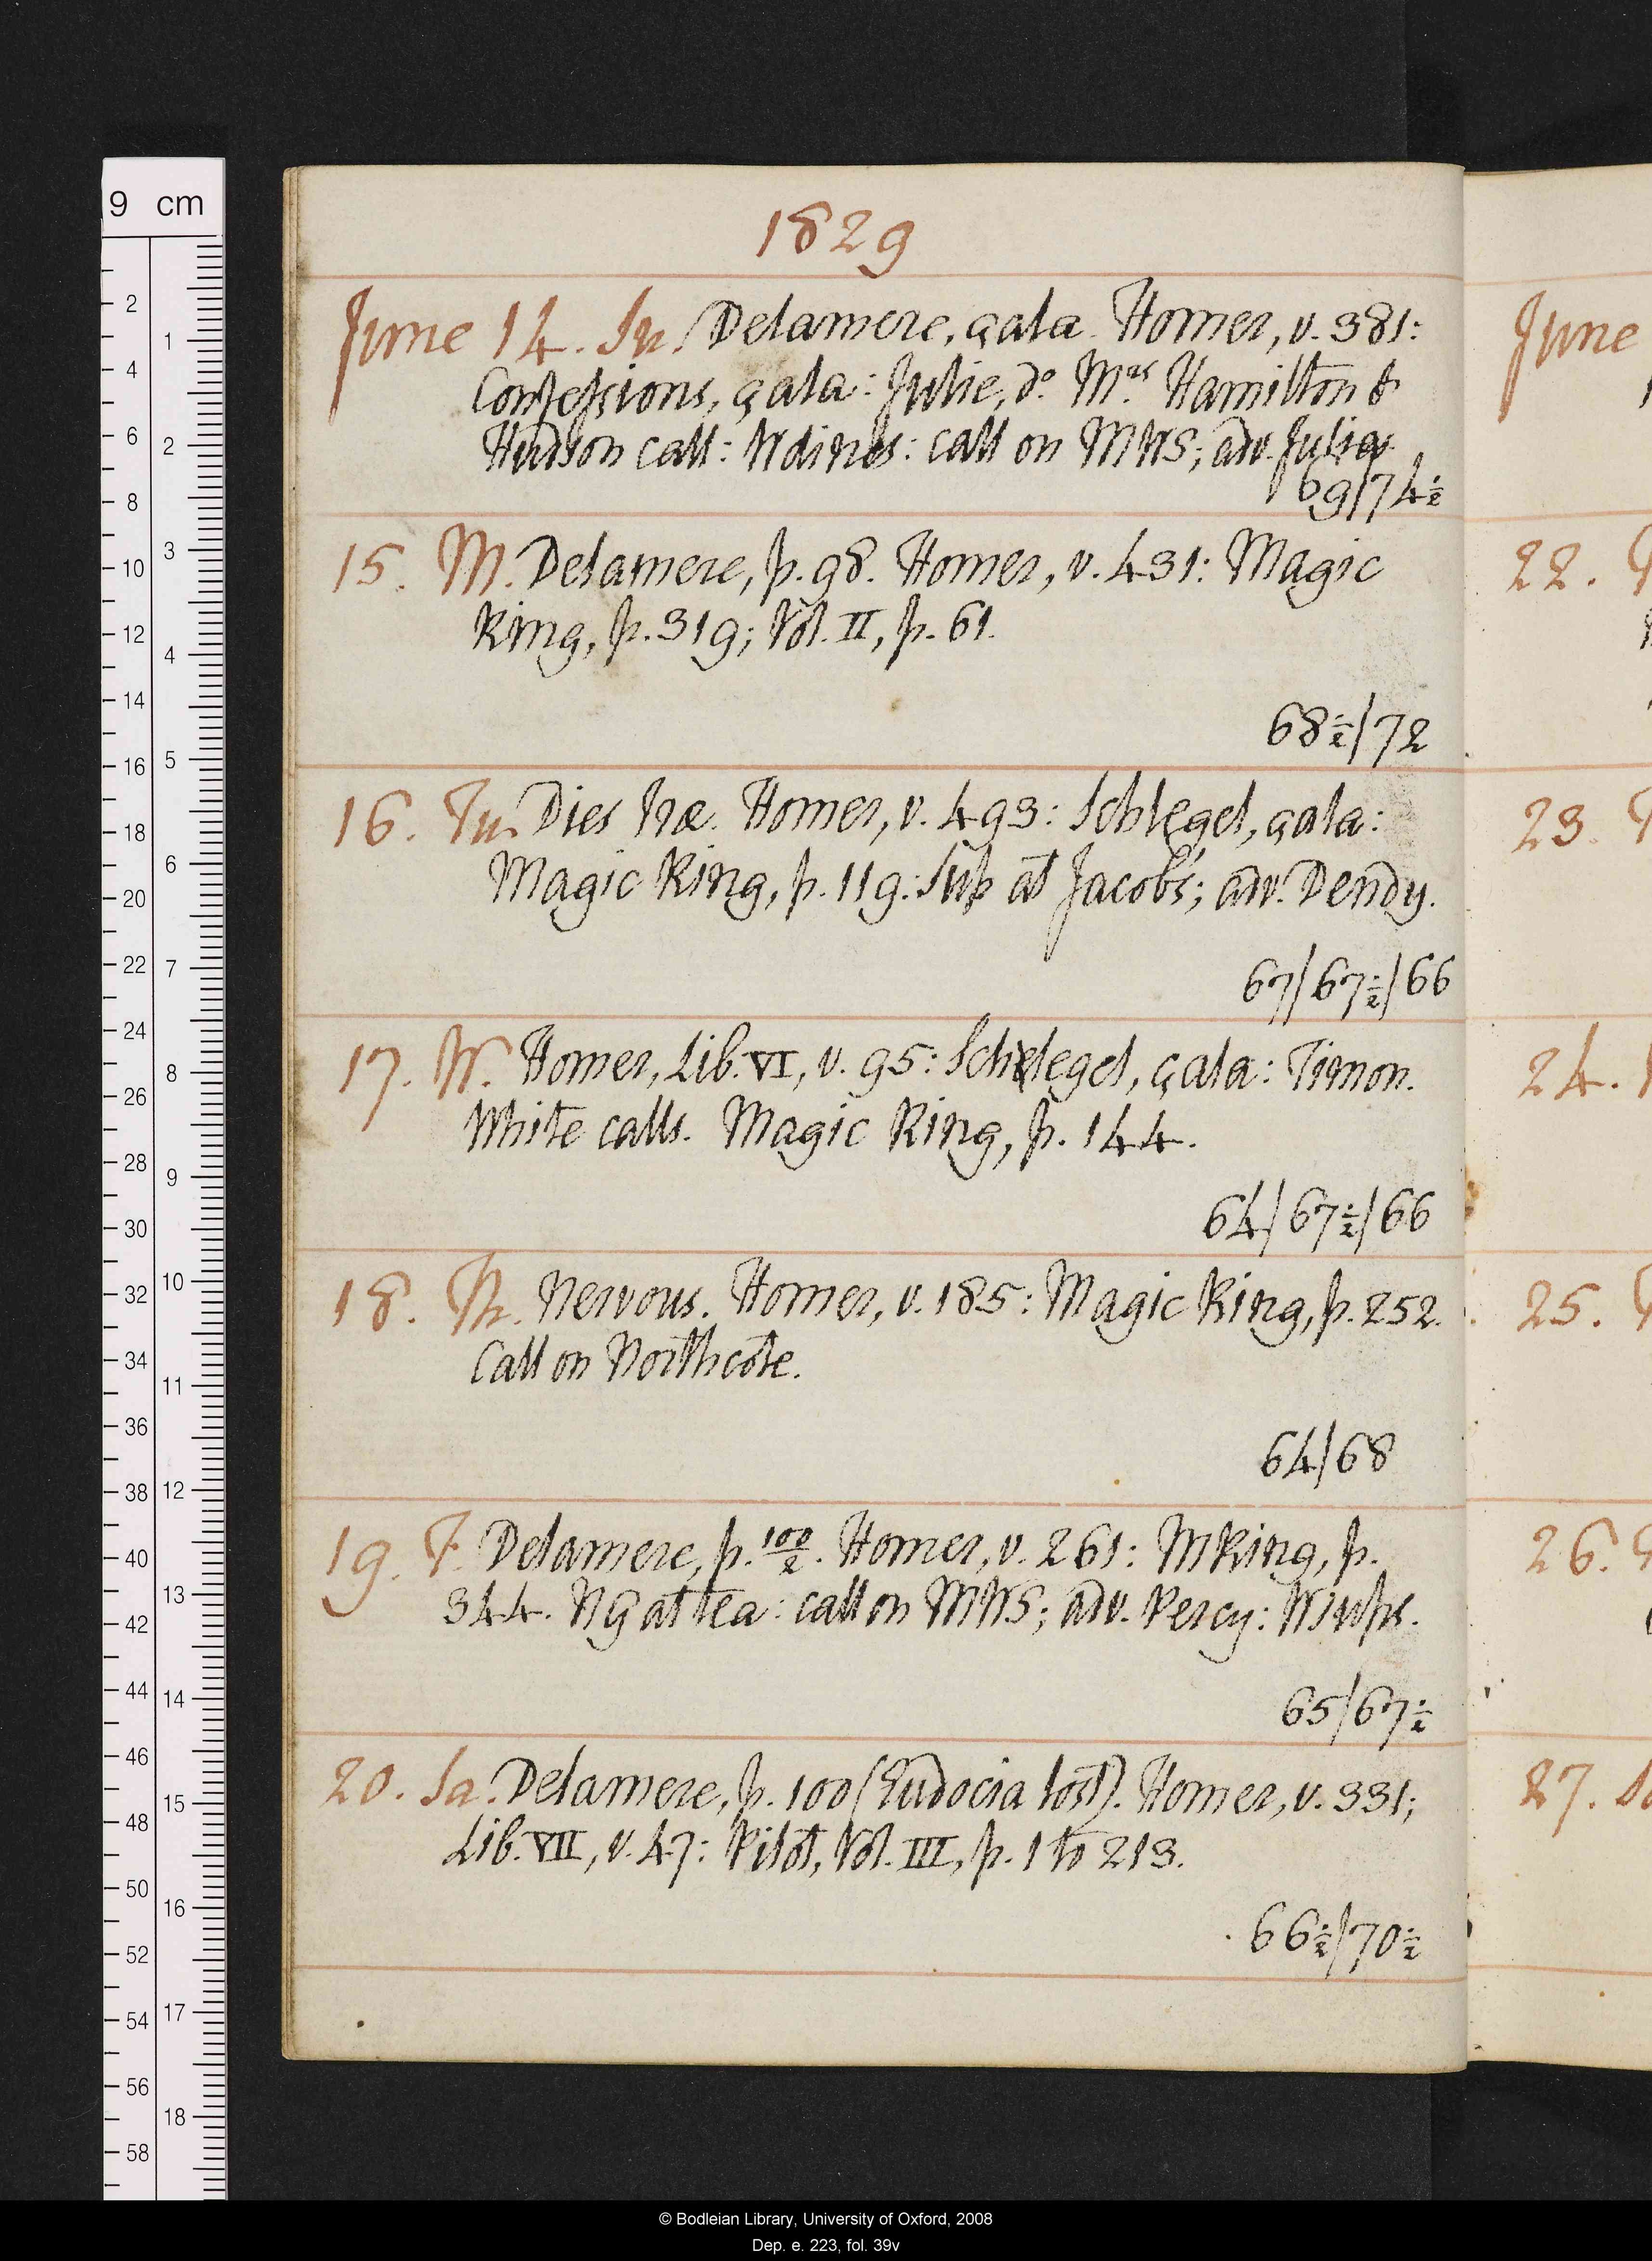 9 cm
1829
June 14. Su. Delamere, çala. Homer, v. 381:
Confessions, çala: Julie, do. Mrs Hamilton &
Hudson call: W dines: call on MWS; adv. Julia
69/74½
15. M. Delamere, p. 98. Homer, v. 431: Magic
Ring, p. 319; Vol. II, p. 61.
68½/72
16. Tu. Dies Iræ. Homer, v. 493: Schlegel, çala:
Magic Ring, p. 119: Sup at Jacob's; adv. Dendy.
67/67½/66
17. W. Homer, Lib. VI, v. 95: Schlegel, çala: Timon.
White calls. Magic Ring, p. 144.
64/67½/66
18. Th. Nervous. Homer, v. 185: Magic Ring, p. 252.
Call on Northcote.
64/68
19. F. Delamere, p. 100/2. Homer, v. 261: MRing, p.
344. NG at tea: call on MWS; adv. Percy: W sups.
65/67½
20. Sa. Delamere, p. 100 (Eudocia lost). Homer, v. 331;
Lib. VII, v. 47: Pilot, Vol. III, p. 1 to 213.
66½/70½
June
22.
23.
24.
25.
26.
27.
© Bodleian Library, University of Oxford, 2008
Dep. e. 223, fol. 39v